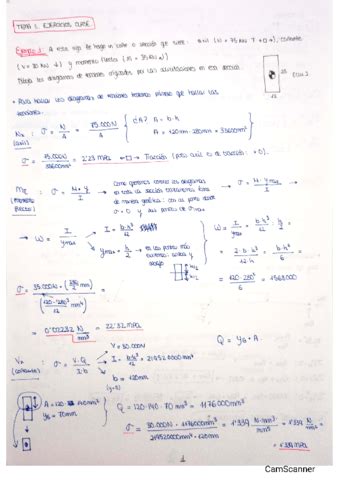 TEMA 1. EJERCICIOS CLASE
Ejemplo 1: A esta viga le llega un corte o sección que sufre: axil (N = 75 KN T +0→), cortante
(V = 30 KN ↓) y momento flector (M = 35 KN)
Dibuja los diagramas de tensiones originados por las solicitaciones en esa sección.
• Para hallar los diagramas de tensiones tenemos primero que hallar las
tensiones.
Nx: (axil) σ = N/A = 75.000N/A { ¿A? A = b·h
A = 120mm·280mm = 33600mm²
σ = 75.000N/33600mm² = 2'23 MPa → Tracción (pues axil es de tracción: +0).
(momento flector) σ = M·y/I → Como queremos contar los diagramas
en toda la sección
de manera gráfica: con os puntos donde
σ = 0 y dos puntos de σ max
→ W = I/ymax
I = b·h³/12
ymax = h/2 → en los puntos más
extremos: arriba y
abajo
W = I/ymax = b·h³/12 : h/2
= 2·b·h³/12·h = b·h²/6
= 120·280²/6 = 1568000
= 0'02232 N/mm² = 22'32 MPa
Q = yG·A
(cortante) σ = V·Q/I·b
V = 30.000N
I = b·h³/12 = 219520000mm⁴
b = 120mm
A = 120·140mm²
yG = 70mm
Q = 120·140·70 mm³ = 1176000mm³
σ = 30.000N · 1176000mm³ / 219520000mm⁴·120mm = 1'339 N·mm³/mm⁴·mm = 1'339 N/mm² =
= 1'339 MPa
1
CamScanner